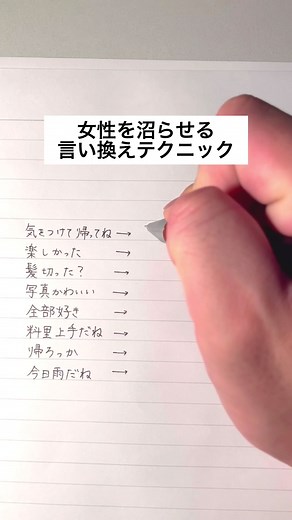 女性を沼らせる
言い換えテクニック
気をつけて帰ってね →
楽しかった →
髪切った? →
写真かわいい →
全部好き →
料理上手だね →
帰ろっか →
今日雨だね →